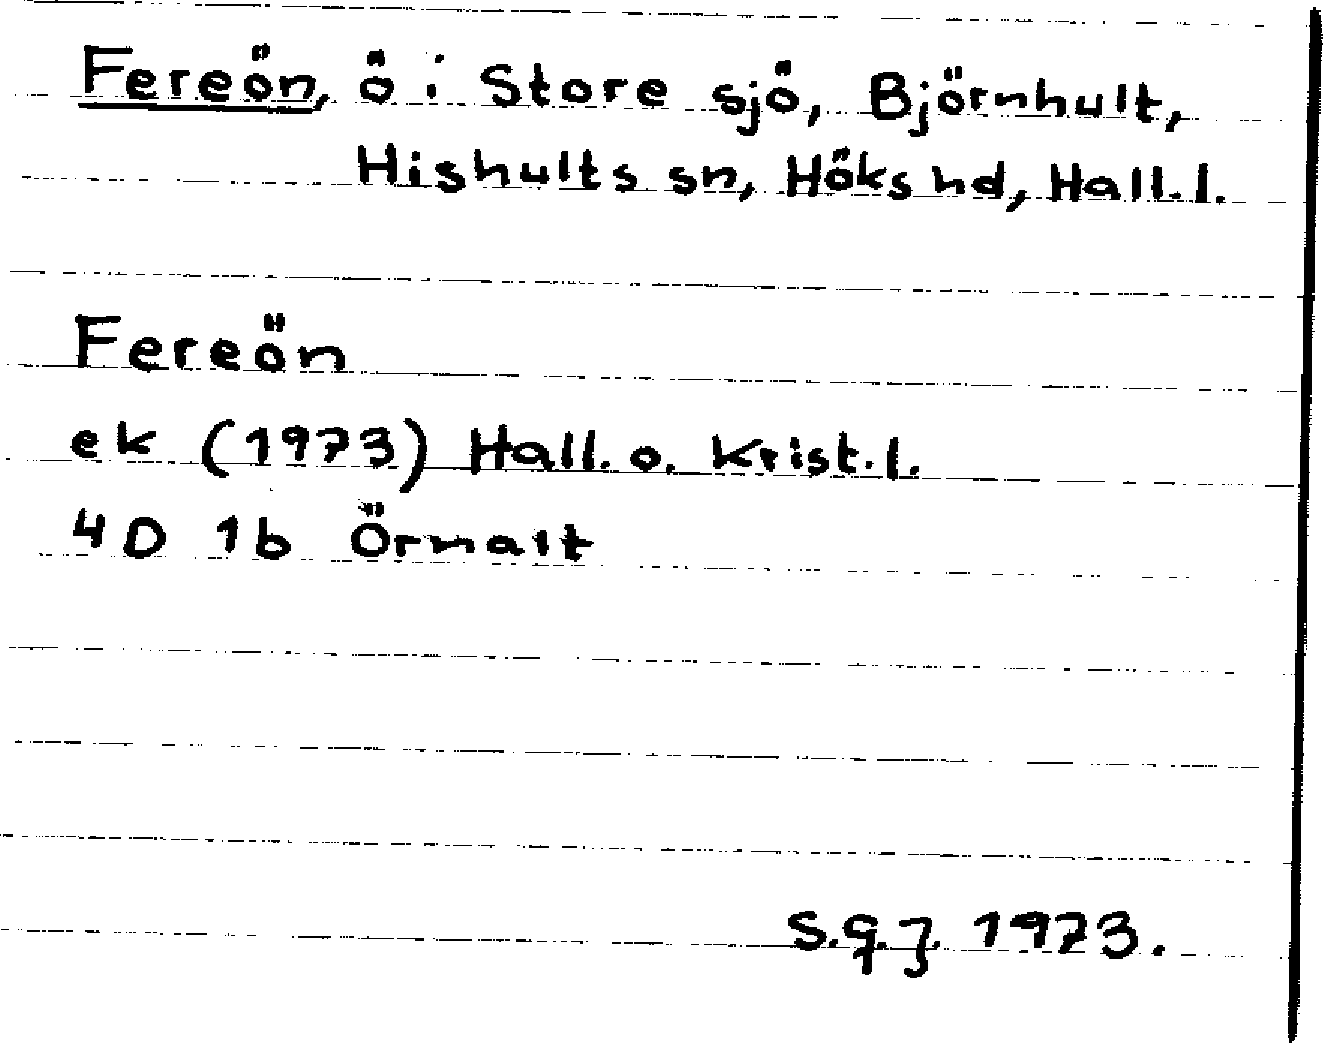 Fereön, ö i Store sjö, Björnhult,
Hishults sn, Höks hd, Hall.l.
Fereön
ek (1973) Hall. o. Krist.l.
4D 1b Örmalt
S.G.J. 1973.